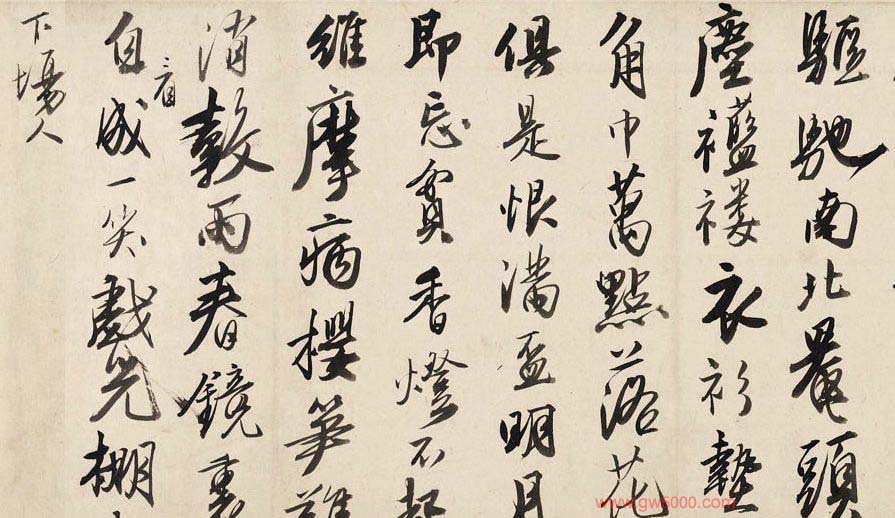 驅馳南北罨頭
塵襤褸衣衫墊
角巾萬點落花
俱是恨滿盃明月
即忘貧香燈不起
維摩病櫻笋難
消穀雨春鏡裏
自看成一笑戲棚
下場人
www.gw5000.com